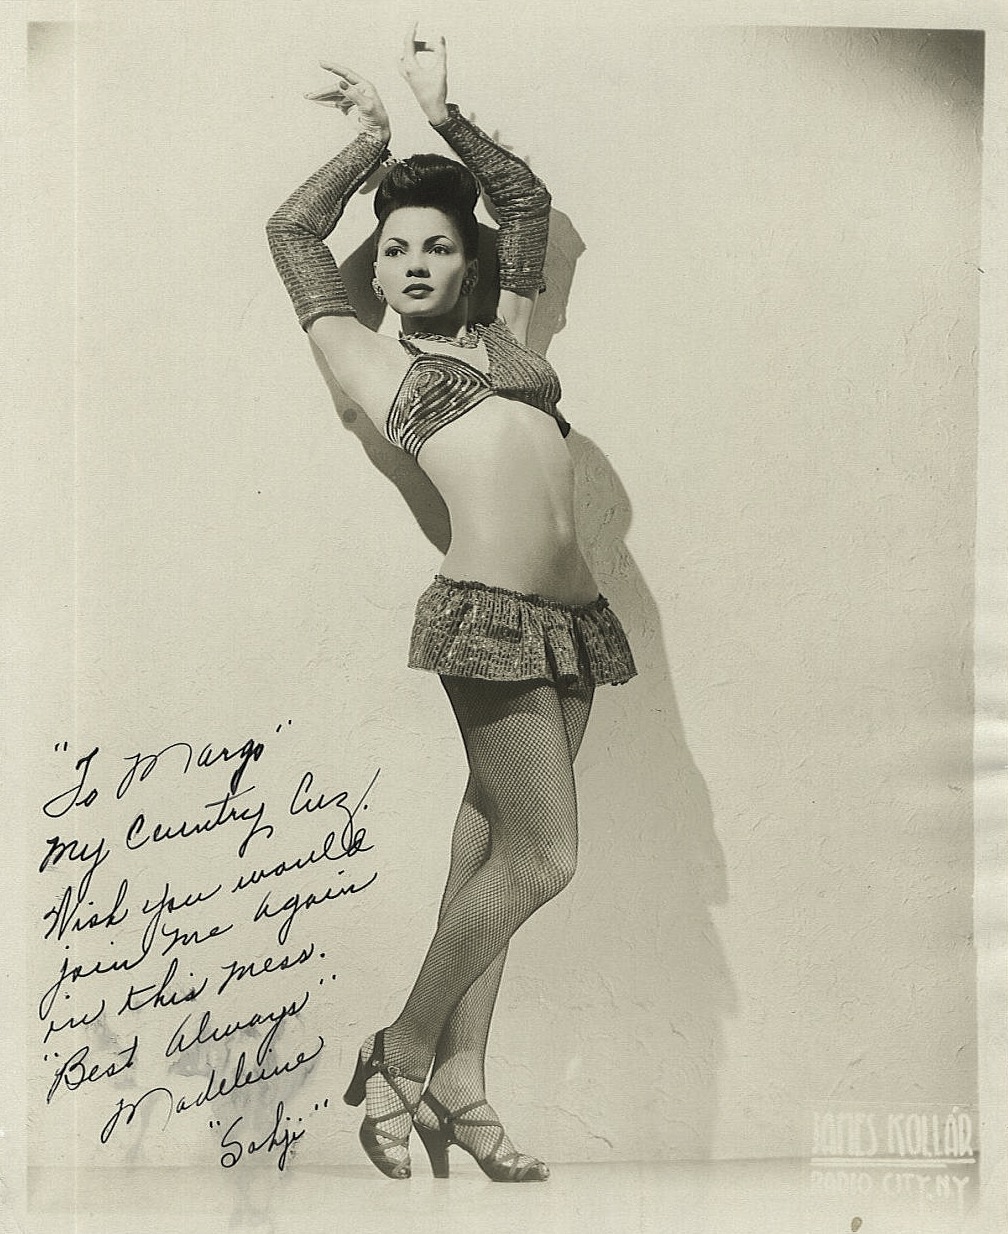 "To Margo"
My Country Cuz!
Wish you would
join me again
in this mess.
"Best Always"
Madeleine
"Sahji"
JAMES KOLLAR
RADIO CITY, NY